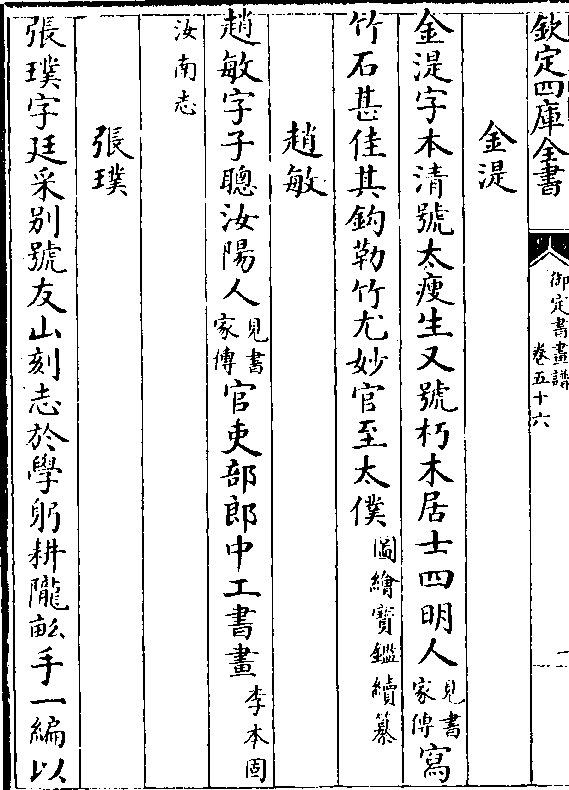 欽定四庫全書
御定書畫譜
卷五十六
金湜
金湜字木清號太瘦生又號朽木居士四明人見書家傳寫
竹石甚佳其鈎勒竹尤妙官至太僕圖繪寳鑑續纂
趙敏
趙敏字子聰汝陽人見書家傳官吏部郎中工書畫李本固
汝南志
張璞
張璞字廷采别號友山刻志於學躬耕隴畝手一編以